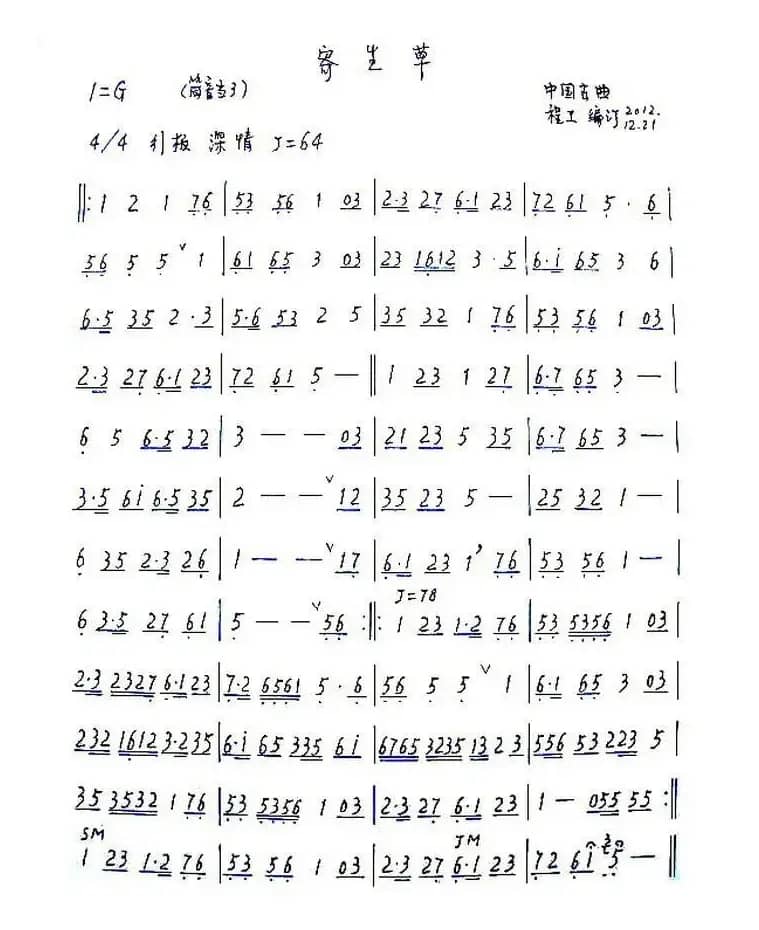 寄生草
1=G (筒音当3) 中国古曲
程工 编订 2012.12.21
4/4 引板 深情 J=64
‖: 1 2 1 76 | 53 56 1 03 | 2·3 27 6·1 23 | 72 61 5 · 6 |
56 5 5 ∨ 1 | 61 65 3 03 | 23 1612 3 · 5 | 6·i 65 3 6 |
6·5 35 2 · 3 | 5·6 53 2 5 | 35 32 1 76 | 53 56 1 03 |
2·3 27 6·1 23 | 72 61 5 — ‖ 1 23 1 27 | 6·7 65 3 — |
6 5 6·5 32 | 3 — — 03 | 21 23 5 35 | 6·7 65 3 — |
3·5 6i 6·5 35 | 2 — — ∨ 12 | 35 23 5 — | 25 32 1 — |
6 35 2·3 26 | 1 — — ∨ 17 | 6·1 23 1 ’ 76 | 53 56 1 — |
J=78
6 3·5 27 61 | 5 — — ∨ 56 :‖: 1 23 1·2 76 | 53 5356 1 03 |
2·3 2327 6·1 23 | 7·2 6561 5 · 6 | 56 5 5 ∨ 1 | 6·1 65 3 03 |
232 1612 3·235 | 6·i 65 335 6i | 6765 3235 13 2 3 | 556 53 223 5 |
35 3532 1 76 | 53 5356 1 03 | 2·3 27 6·1 23 | 1 — 055 55 :‖
SM JM
1 23 1·2 76 | 53 56 1 03 | 2·3 27 6·1 23 | 72 61 5 — ‖